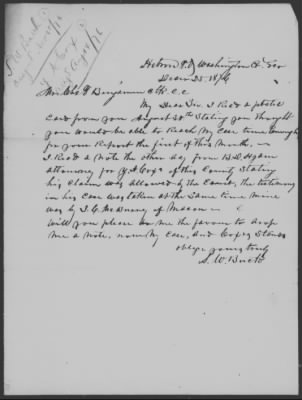 Hebron P.O. Washington Co. Geo
Decm 25. 1876
Mr. Chs F Benjamin Clk. C.C
My Dear Sir. I Recd a postal
Card from you August 30th Stating you thought
you would be able to Reach My Case time enough
for your Report the first of this Month.
I Recd a Note the other day from
attorney for of this County Stating
his Claim was allowed by the Court, the testimony
in his Case was taken at the Same time Mine
was by of Macon
Will you please do me the favour to drop
Me a Note, how My Case, and Cox's Stands
oblige yours truly
S. W.